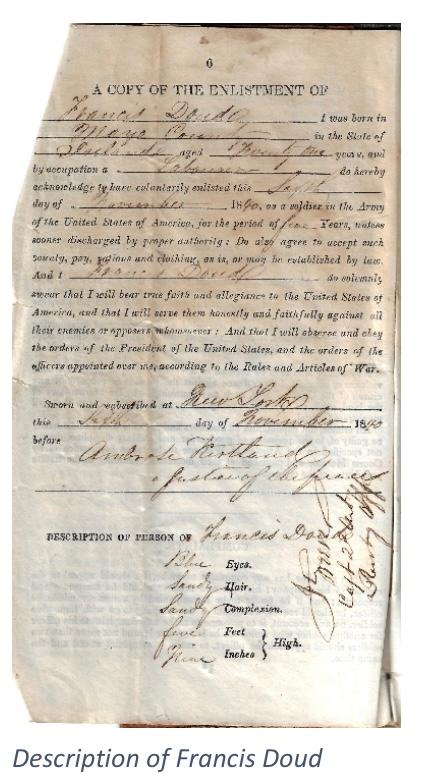 6
A COPY OF THE ENLISTMENT OF
Francis Doud I was born in
Mayo County in the State of
Irelande aged Twenty One years, and
by occupation a Labourer do hereby
acknowledge to have voluntarily enlisted this Sixth
day of November 1840, as a soldier in the Army
of the United States of America, for the period of five Years, unless
sooner discharged by proper authority: Do also agree to accept such
bounty, pay, rations and clothing, as is, or may be established by law.
And I Francis Doud do solemnly
swear that I will bear true faith and allegiance to the United States of
America, and that I will serve them honestly and faithfully against all
their enemies or opposers whomsoever: And that I will observe and obey
the orders of the President of the United States, and the orders of the
officers appointed over me, according to the Rules and Articles of War.
Sworn and subscribed at New York
this Sixth day of November 1840
before
Ambrose Kirtland
a Justice of the peace
DESCRIPTION OF PERSON OF Francis Doud
Blue Eyes.
Sandy Hair.
Sandy Complexion.
five Feet
Nine Inches } High.
Capt 2
Description of Francis Doud